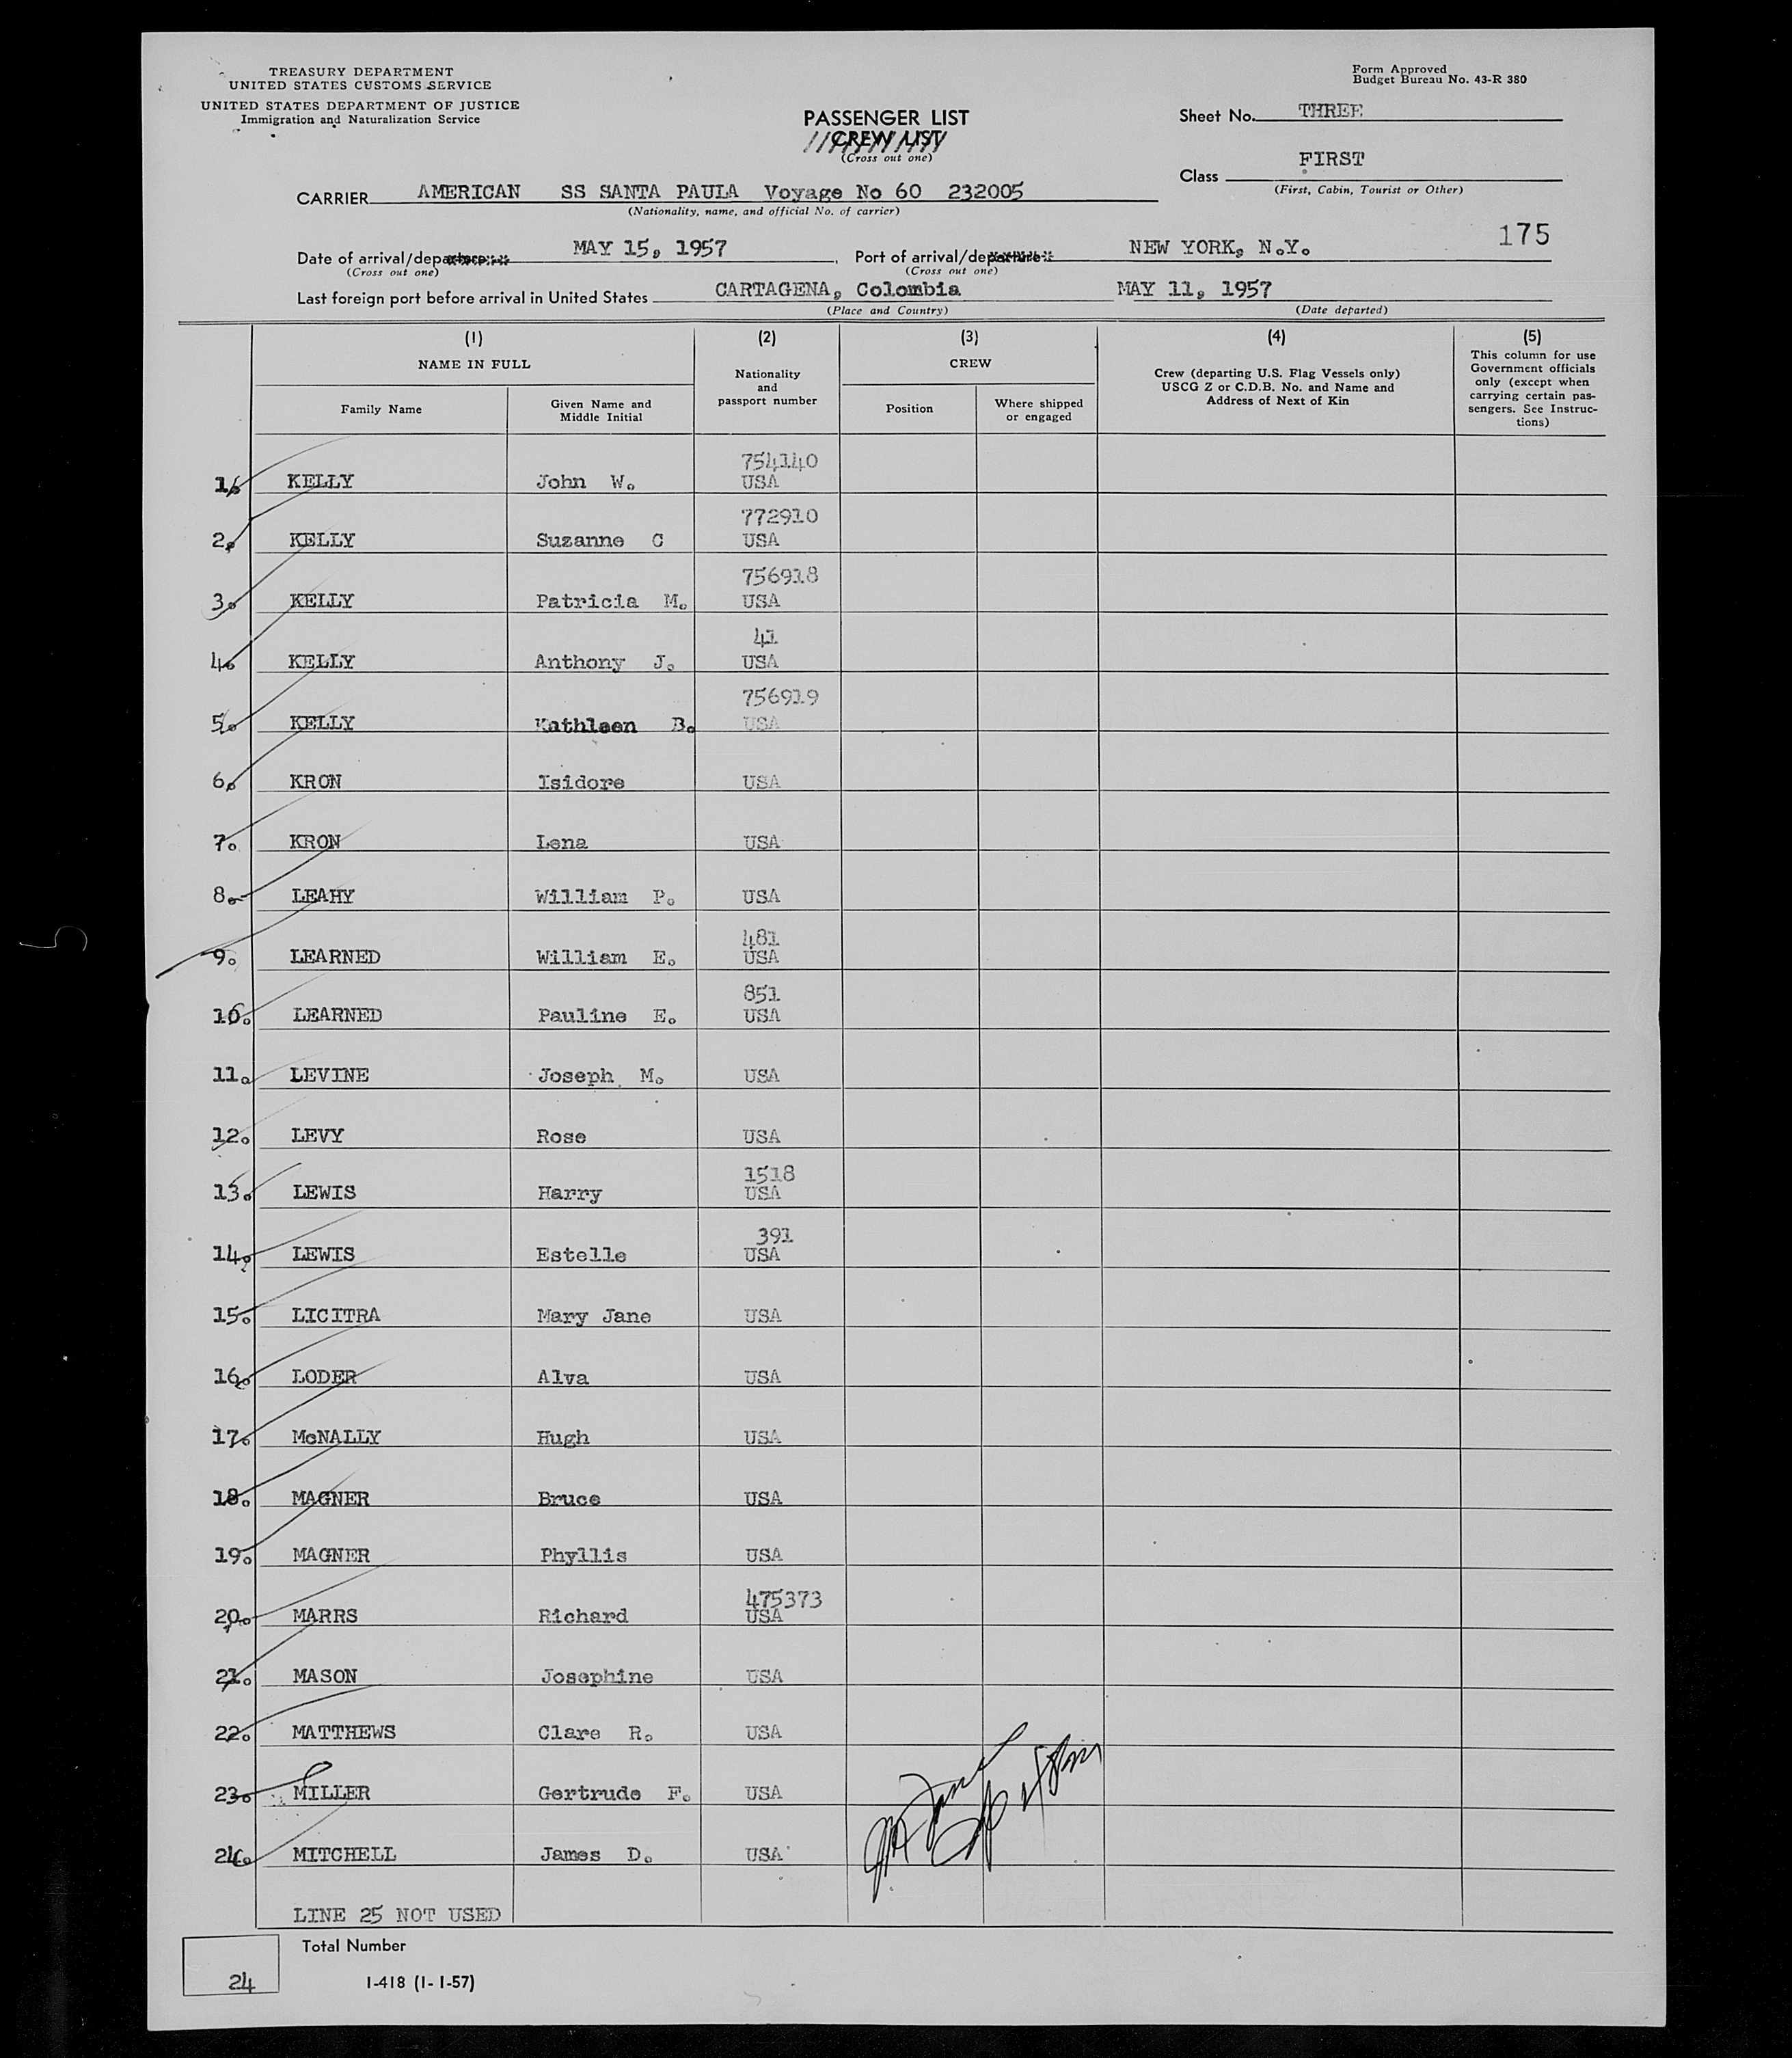 TREASURY DEPARTMENT
UNITED STATES CUSTOMS SERVICE
UNITED STATES DEPARTMENT OF JUSTICE
Immigration and Naturalization Service
Form Approved
Budget Bureau No. 43-R 380
PASSENGER LIST
CREW LIST
(Cross out one)
Sheet No. THREE
Class FIRST
(First, Cabin, Tourist or Other)
CARRIER AMERICAN SS SANTA PAULA Voyage No 60 232005
(Nationality, name, and official No. of carrier)
175
Date of arrival/departure MAY 15, 1957 Port of arrival/departure NEW YORK, N.Y.
(Cross out one) (Cross out one)
Last foreign port before arrival in United States CARTAGENA, Colombia MAY 11, 1957
(Place and Country) (Date departed)
(1) (2) (3) (4) (5)
NAME IN FULL
Family Name
Given Name and
Middle Initial
Nationality
and
passport number
CREW
Position
Where shipped
or engaged
Crew (departing U.S. Flag Vessels only)
USCG Z or C.D.B. No. and Name and
Address of Next of Kin
This column for use
Government officials
only (except when
carrying certain pas-
sengers. See Instruc-
tions)
754140
1. KELLY John W. USA
772910
2. KELLY Suzanne C USA
756918
3. KELLY Patricia M. USA
41
4. KELLY Anthony J. USA
756919
5. KELLY Kathleen B. USA
6. KRON Isidore USA
7. KRON Lena USA
8. LEAHY William P. USA
481
9. LEARNED William E. USA
851
10. LEARNED Pauline E. USA
11. LEVINE Joseph M. USA
12. LEVY Rose USA
1518
13. LEWIS Harry USA
391
14. LEWIS Estelle USA
15. LICITRA Mary Jane USA
16. LODER Alva USA
17. McNALLY Hugh USA
18. MAGNER Bruce USA
19. MAGNER Phyllis USA
475373
20. MARRS Richard USA
21. MASON Josephine USA
22. MATTHEWS Clare R. USA
23. MILLER Gertrude F. USA
24. MITCHELL James D. USA
LINE 25 NOT USED
Total Number
24
I-418 (1-1-57)